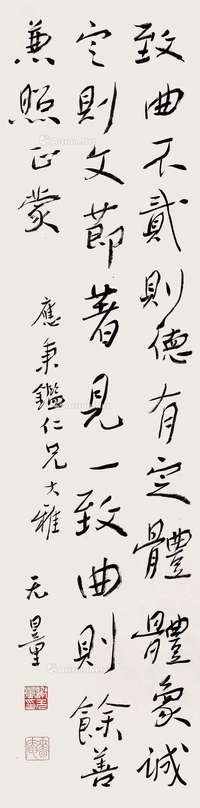 致曲不貳則德有定體體象誠
定則文節著見一致曲則餘善
兼照正蒙
應秉鑑仁兄大雅
无量